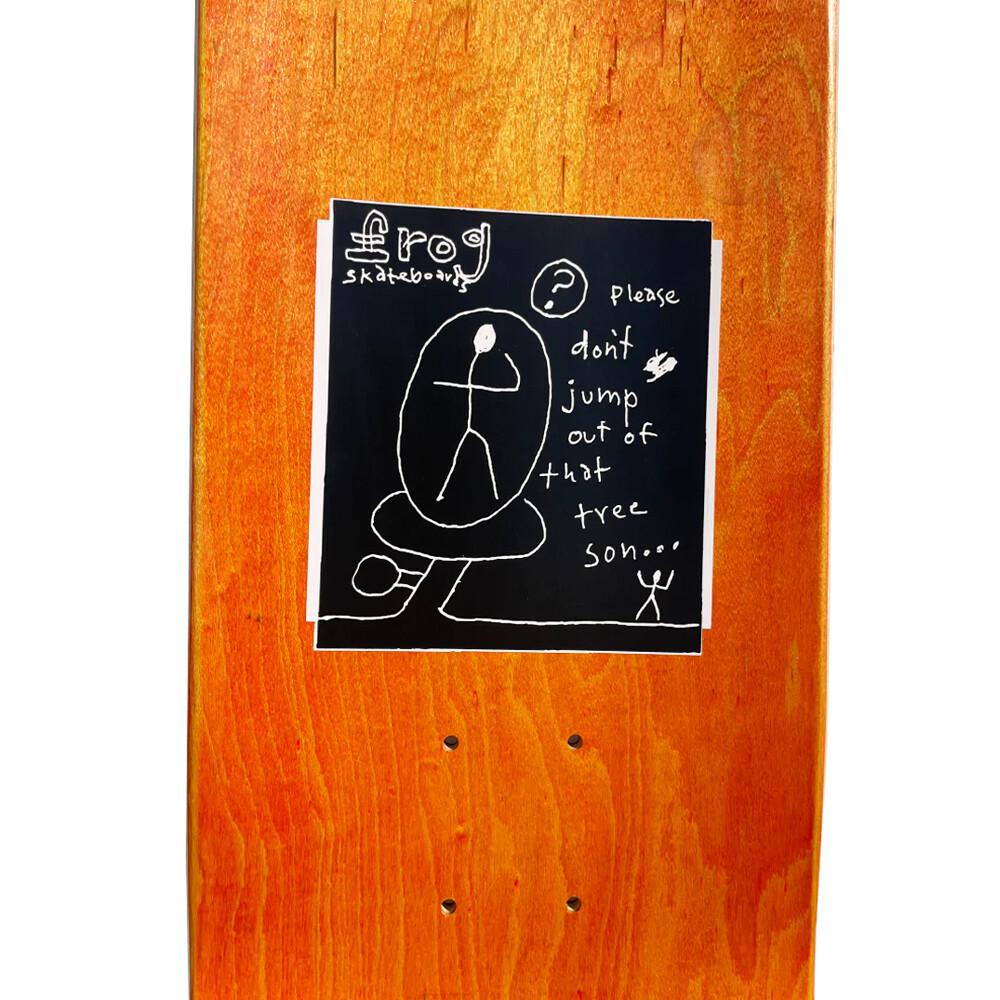 frog
skateboards
?
please
don't
jump
out of
that
tree
son...